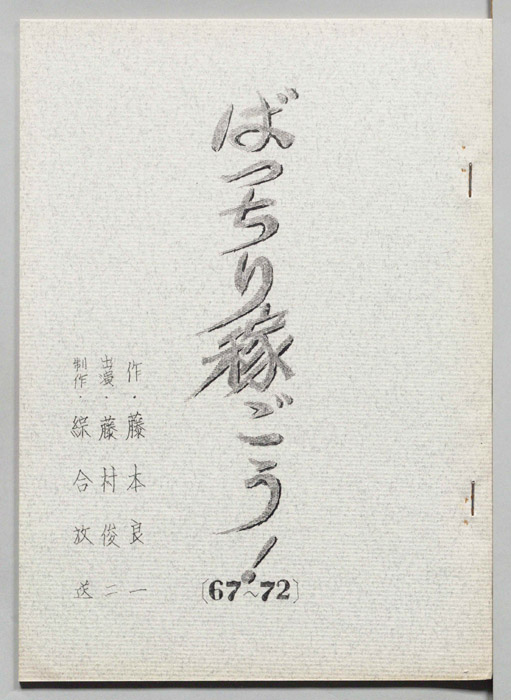 ばっちり稼ごう！
〔67～72〕
作・藤本良一
出演・藤村俊二
制作・綜合放送